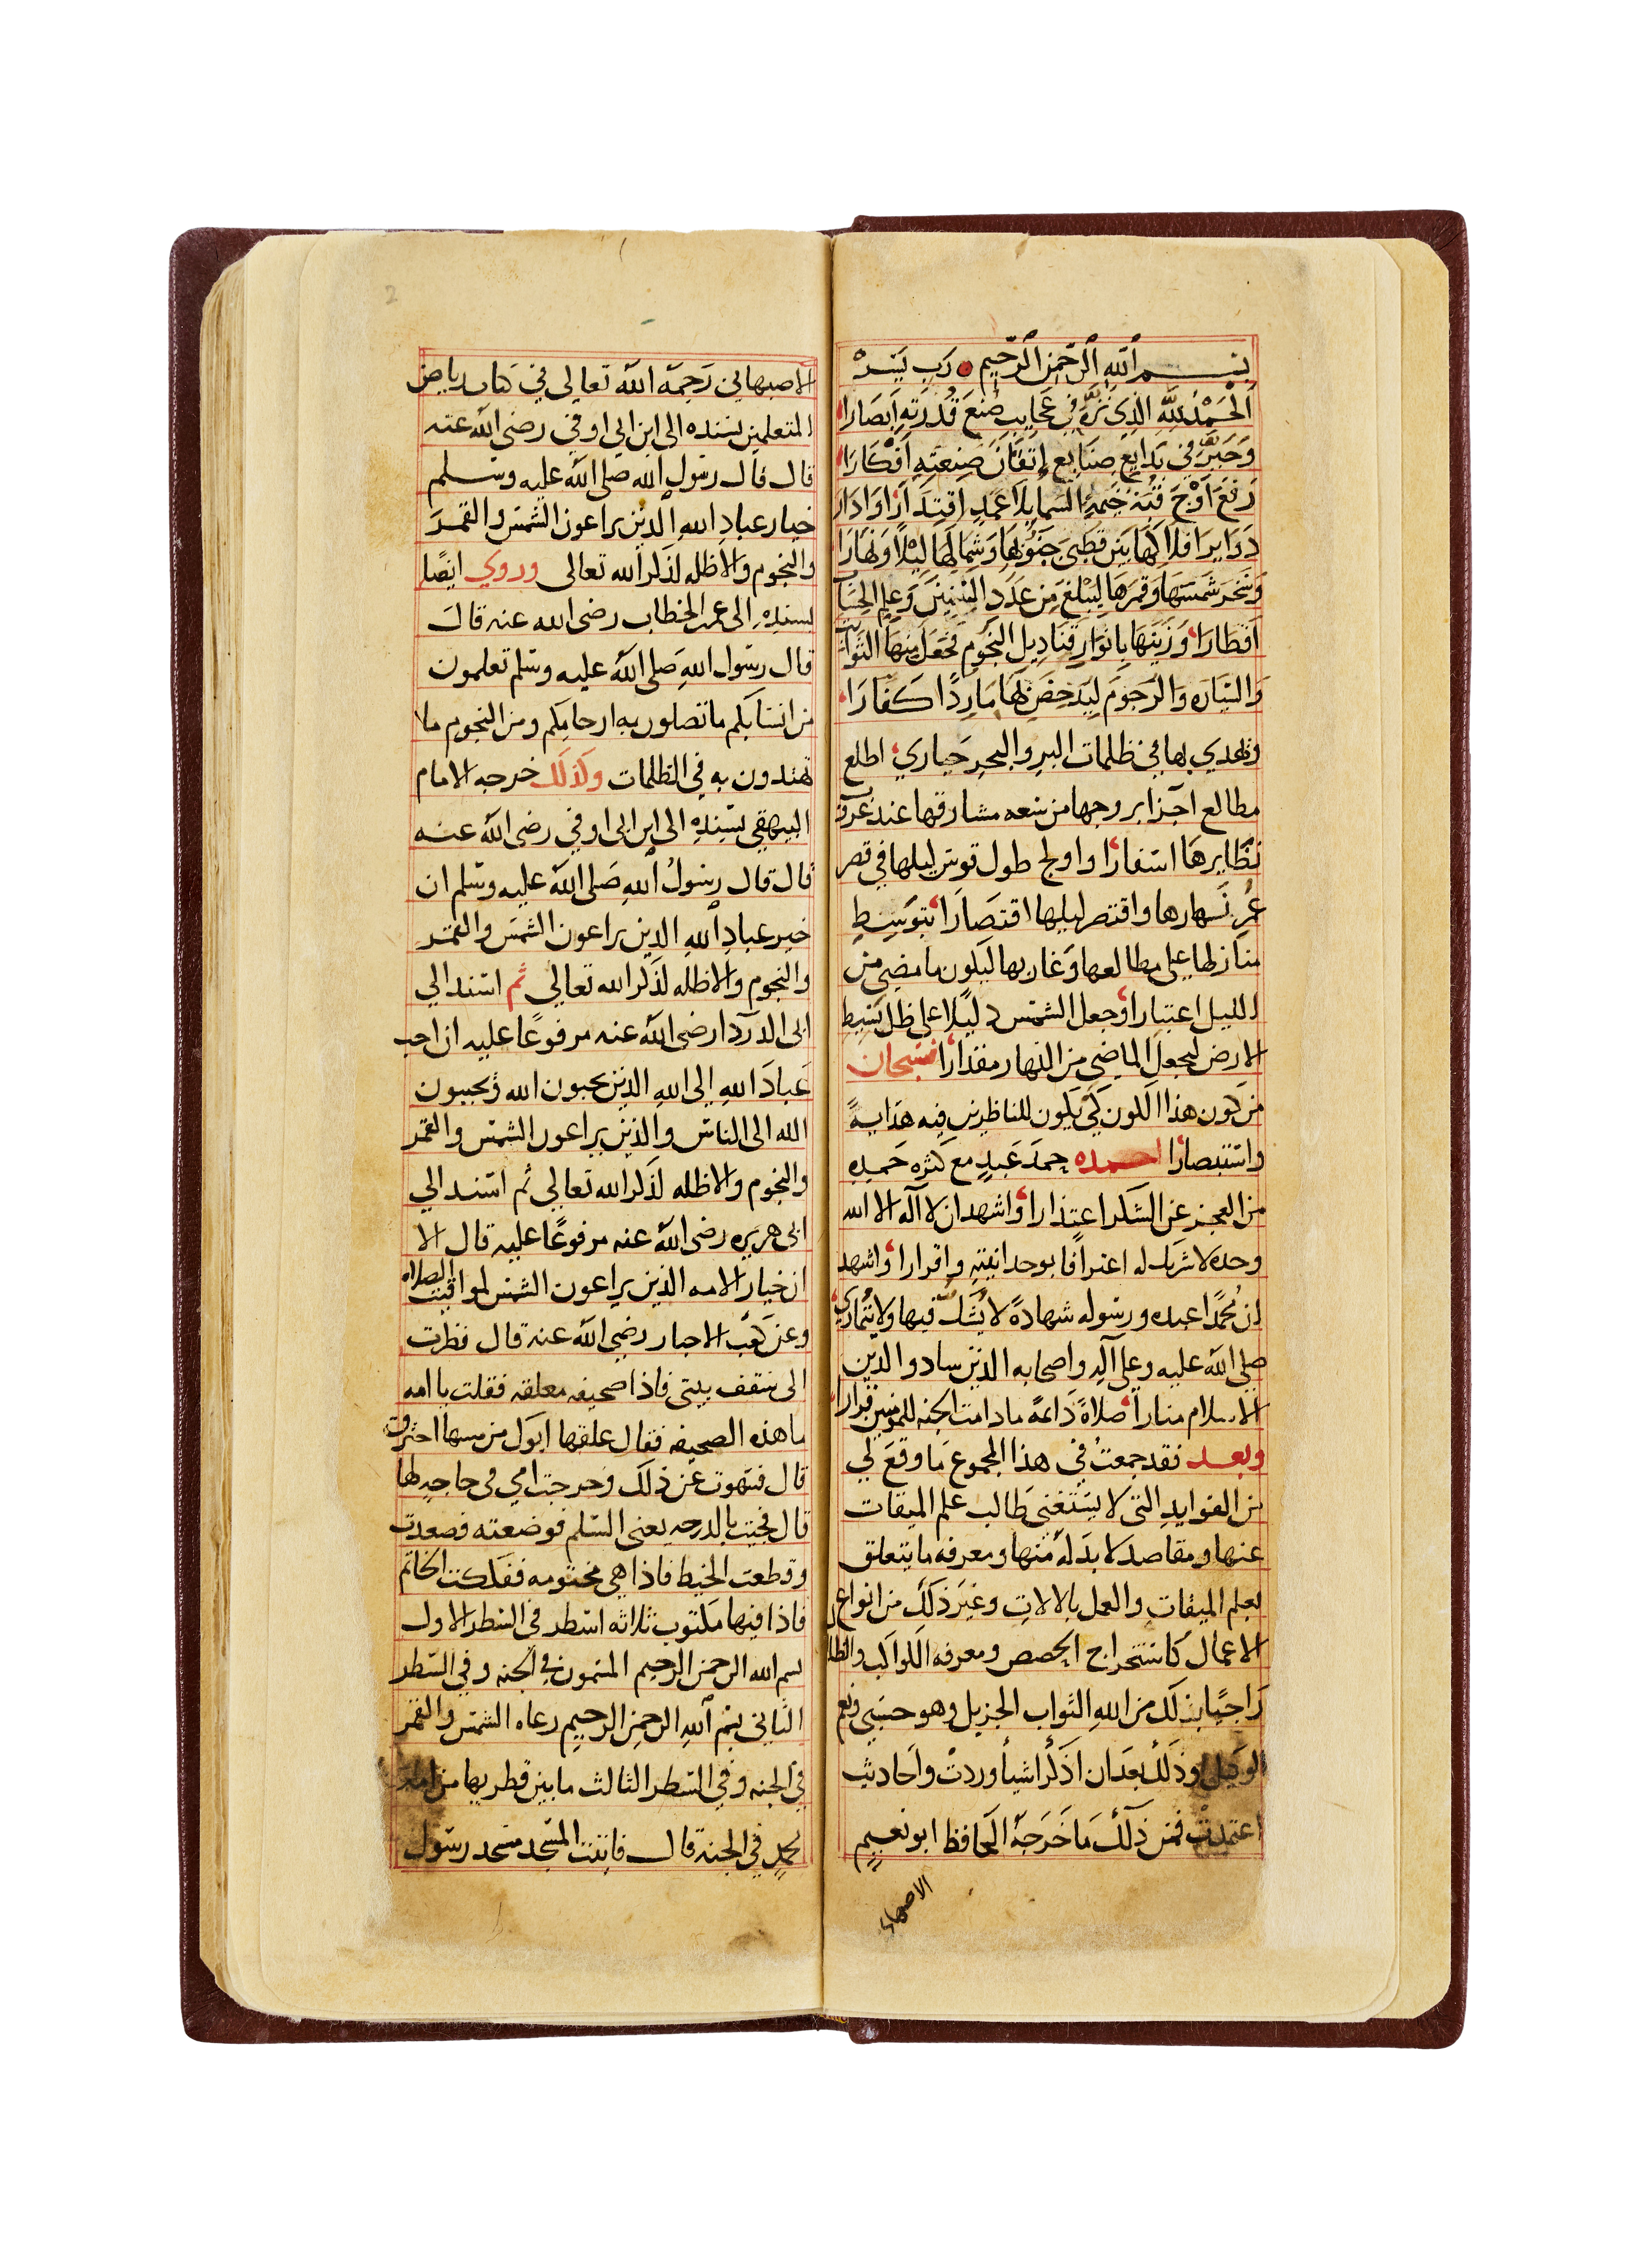 بسم الله الرحمن الرحيم رب يسر
الحمد لله الذي نزه في عجايب صنع قدرته ابصارا
وحير في بدايع صنايع اتقان صنعته افكارا
رفع اوج قبة خيمة السما بلا عمد اقتدارا وادار
دواير افلاكها بين قطبي جنوبها وشمالها ليلا ونهارا
وسخر شمسها وقمرها ليبلغ من عدد السنين وعلم الحساب
اقطارا وزينها بانوار قناديل النجوم فجعل منها الثوابت
والسياره والرجوم ليدحض بها ماردا كفارا
وتهدي بها في ظلمات البر والبحر حياري اطلع
مطالع اجزا بروجها من سعه مشارقها عند غروب
نظايرها اسفارا واولج طول قوس ليلها في قصر
عمر نهارها واقتصر ليلها اقتصارا بتوسط
منازلها على مطالعها وغاربها ليكون ما مضي من
الليل اعتبارا وجعل الشمس دليلا على ظل بسيط
الارض ليجعل الماضي من النهار مقدارا فسبحان
من كون هذا الكون كي يكون للناظرين فيه هداية
واستبصارا احمده حمد عبد مع كثره حمده
من العجز عن الشكر اعتذارا واشهد ان لا اله الا الله
وحده لا شريك له اعترافا بوحدانيته واقرارا واشهد
ان محمدا عبده ورسوله شهادة لا يشك فيها ولا يتماري
صلى الله عليه وعلى آله واصحابه الذين سادوا لدين
الاسلام منارا صلاة دائمة ما دامت الجنه للمومنين قرارا
وبعد فقد جمعت في هذا المجموع ما وقع لي
من الفوايد التي لا يستغني طالب علم الميقات
عنها ومقاصد لا بد له منها ومعرفه ما يتعلق
بعلم الميقات والعمل بالالات وغير ذلك من انواع
الاعمال كاستخراج الحصص ومعرفه الكواكب والظل
راجيا بذلك من الله الثواب الجزيل وهو حسبي ونعم
الوكيل وذلك بعد ان اذكر اشيا وردت واحاديث
اعتمدت فمن ذلك ما خرجه الحافظ ابو نعيم
الاصبهاني
الاصبهاني رحمه الله تعالى في كتاب رياض
المتعلمين بسنده الى ابن ابي اوفي رضى الله عنه
قال قال رسول الله صلى الله عليه وسلم
خيار عباد الله الذين يراعون الشمس والقمر
والنجوم والاظله لذكر الله تعالى وروي ايضا
بسنده الى عمر الخطاب رضى الله عنه قال
قال رسول الله صلى الله عليه وسلم تعلمون
من انسابكم ما تصلون به ارحامكم ومن النجوم ما
تهتدون به في الظلمات وكذلك خرجه الامام
البيهقي بسنده الى ابن ابي اوفي رضى الله عنه
قال قال رسول الله صلى الله عليه وسلم ان
خير عباد الله الذين يراعون الشمس والقمر
والنجوم والاظله لذكر الله تعالى ثم اسند الي
ابى الدردا رضى الله عنه مرفوعا عليه ان احب
عباد الله الى الله الذين يحبون الله ويحببون
الله الى الناس والذين يراعون الشمس والقمر
والنجوم والاظله لذكر الله تعالى ثم اسند الي
ابى هريره رضى الله عنه مرفوعا عليه قال الا
ان خيار الامه الذين يراعون الشمس لمواقيت الصلاه
وعن كعب الاحبار رضي الله عنه قال نظرت
الى سقف بيتى فاذا صحيفه معلقه فقلت يا امه
ما هذه الصحيفه فقال علقها ابوك من مسها احترق
قال فتهوت عن ذلك وخرجت امي في حاجه لها
قال فجيت بالدرجه يعنى السلم فوضعته فصعدت
وقطعت الخيط فاذا هي مختومه ففككت الخاتم
فاذا فيها مكتوب ثلاثه اسطر في السطر الاول
بسم الله الرحمن الرحيم المتمون في الجنه وفي السطر
الثاني بسم الله الرحمن الرحيم رعاه الشمس والقمر
في الجنه وفي السطر الثالث ما بين قطريها من امة
محمد في الجنة قال فاتيت المسجد مسجد رسول